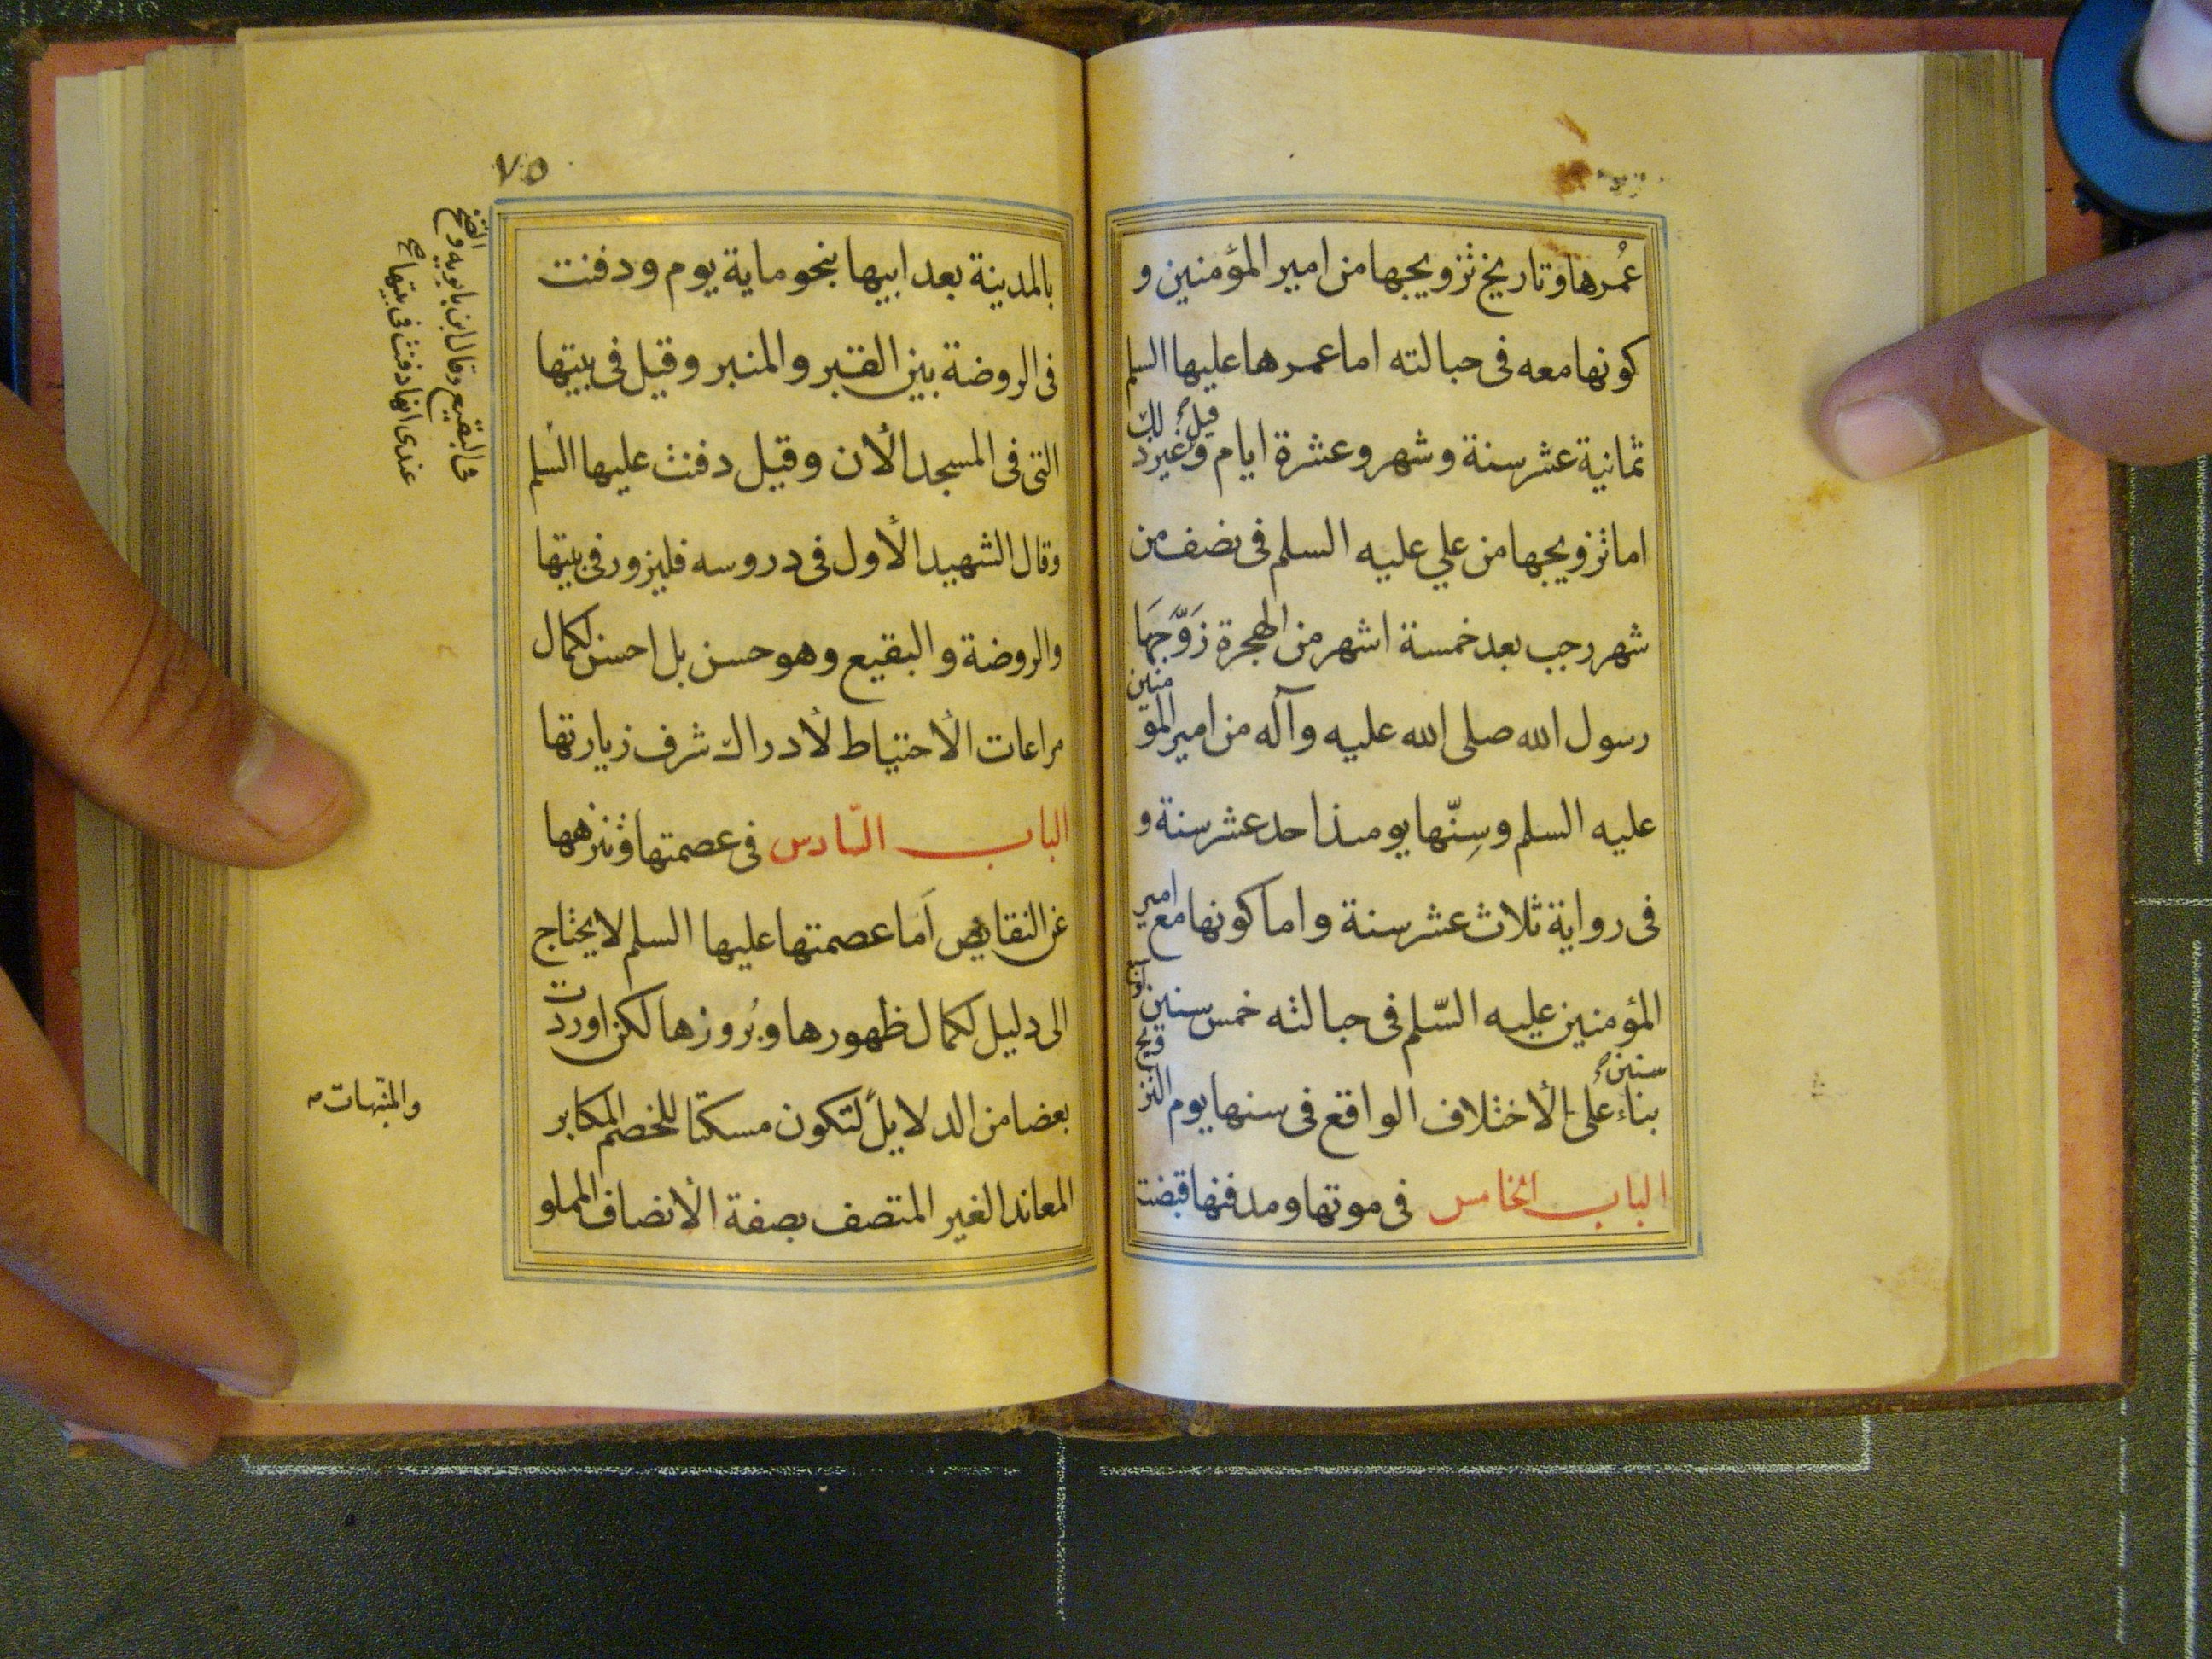 عُمرها وتاريخ تزويجها من امير المؤمنين و
كونها معه فى حبالته اما عمرها عليها السلم
ثمانية عشر سنة وشهر وعشرة ايام وقيل غير ذلك
اما تزويجها من علي عليه السلم فى نصف من
شهر رجب بعد خمسة اشهر من الهجرة زَوَّجَهَا
رسول الله صلى الله عليه وآله من امير المؤمنين
عليه السلم وسِنّها يومئذ احد عشر سنة و
فى رواية ثلاث عشر سنة واما كونها مع امير
المؤمنين عليه السّلم فى حبالته خمس سنين
سنين بناء على الأختلاف الواقع فى سنها يوم التزويج
الباب الخامس فى موتها ومدفنها قبضت
٧٥
بالمدينة بعد ابيها بنحو ماية يوم ودفنت
فى الروضة بين القبر والمنبر وقيل فى بيتها
التى فى المسجد الأن وقيل دفنت عليها السلم
فى البقيع وقال ابن بابويه
عندى انها دفنت فى بيتها صح
وقال الشهيد الأول فى دروسه فليزور فى بيتها
والروضة والبقيع وهو حسن بل احسن لكمال
مراعات الأحتياط لأدراك شرف زيارتها
الباب السّادس فى عصمتها وتنزهها
عن النقايص اَما عصمتها عليها السلم لا يحتاج
الى دليل لكمال ظهورها وبُروزها لكن اوردت
بعضا من الدلايل لتكون مسكتا للخصم المكابر
والمنبّهات
المعاند الغير المتصف بصفة الأنصاف المملو